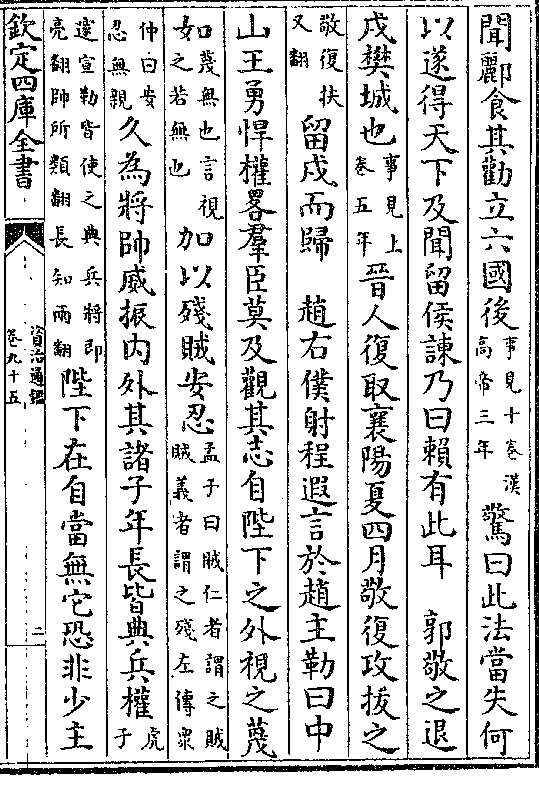 聞酈食其勸立六國後事見十卷漢高帝三年驚曰此法當失何
以遂得天下及聞留侯諫乃曰賴有此耳　郭敬之退
戍樊城也事見上卷五年晉人復取襄陽夏四月敬復攻拔之
敬復扶又翻留戍而歸　趙右僕射程遐言於趙主勒曰中
山王勇悍權畧羣臣莫及觀其志自陛下之外視之蔑
如蔑無也言視女之若無也加以殘賊安忍孟子曰賊仁者謂之賊賊義者謂之殘左傳衆
仲曰安忍無親久為將帥威振内外其諸子年長皆典兵權虎子
邃宣勒皆使之典兵將即亮翻帥所類翻長知兩翻陛下在自當無它恐非少主
欽定四庫全書
資治通鑑
卷九十五
二